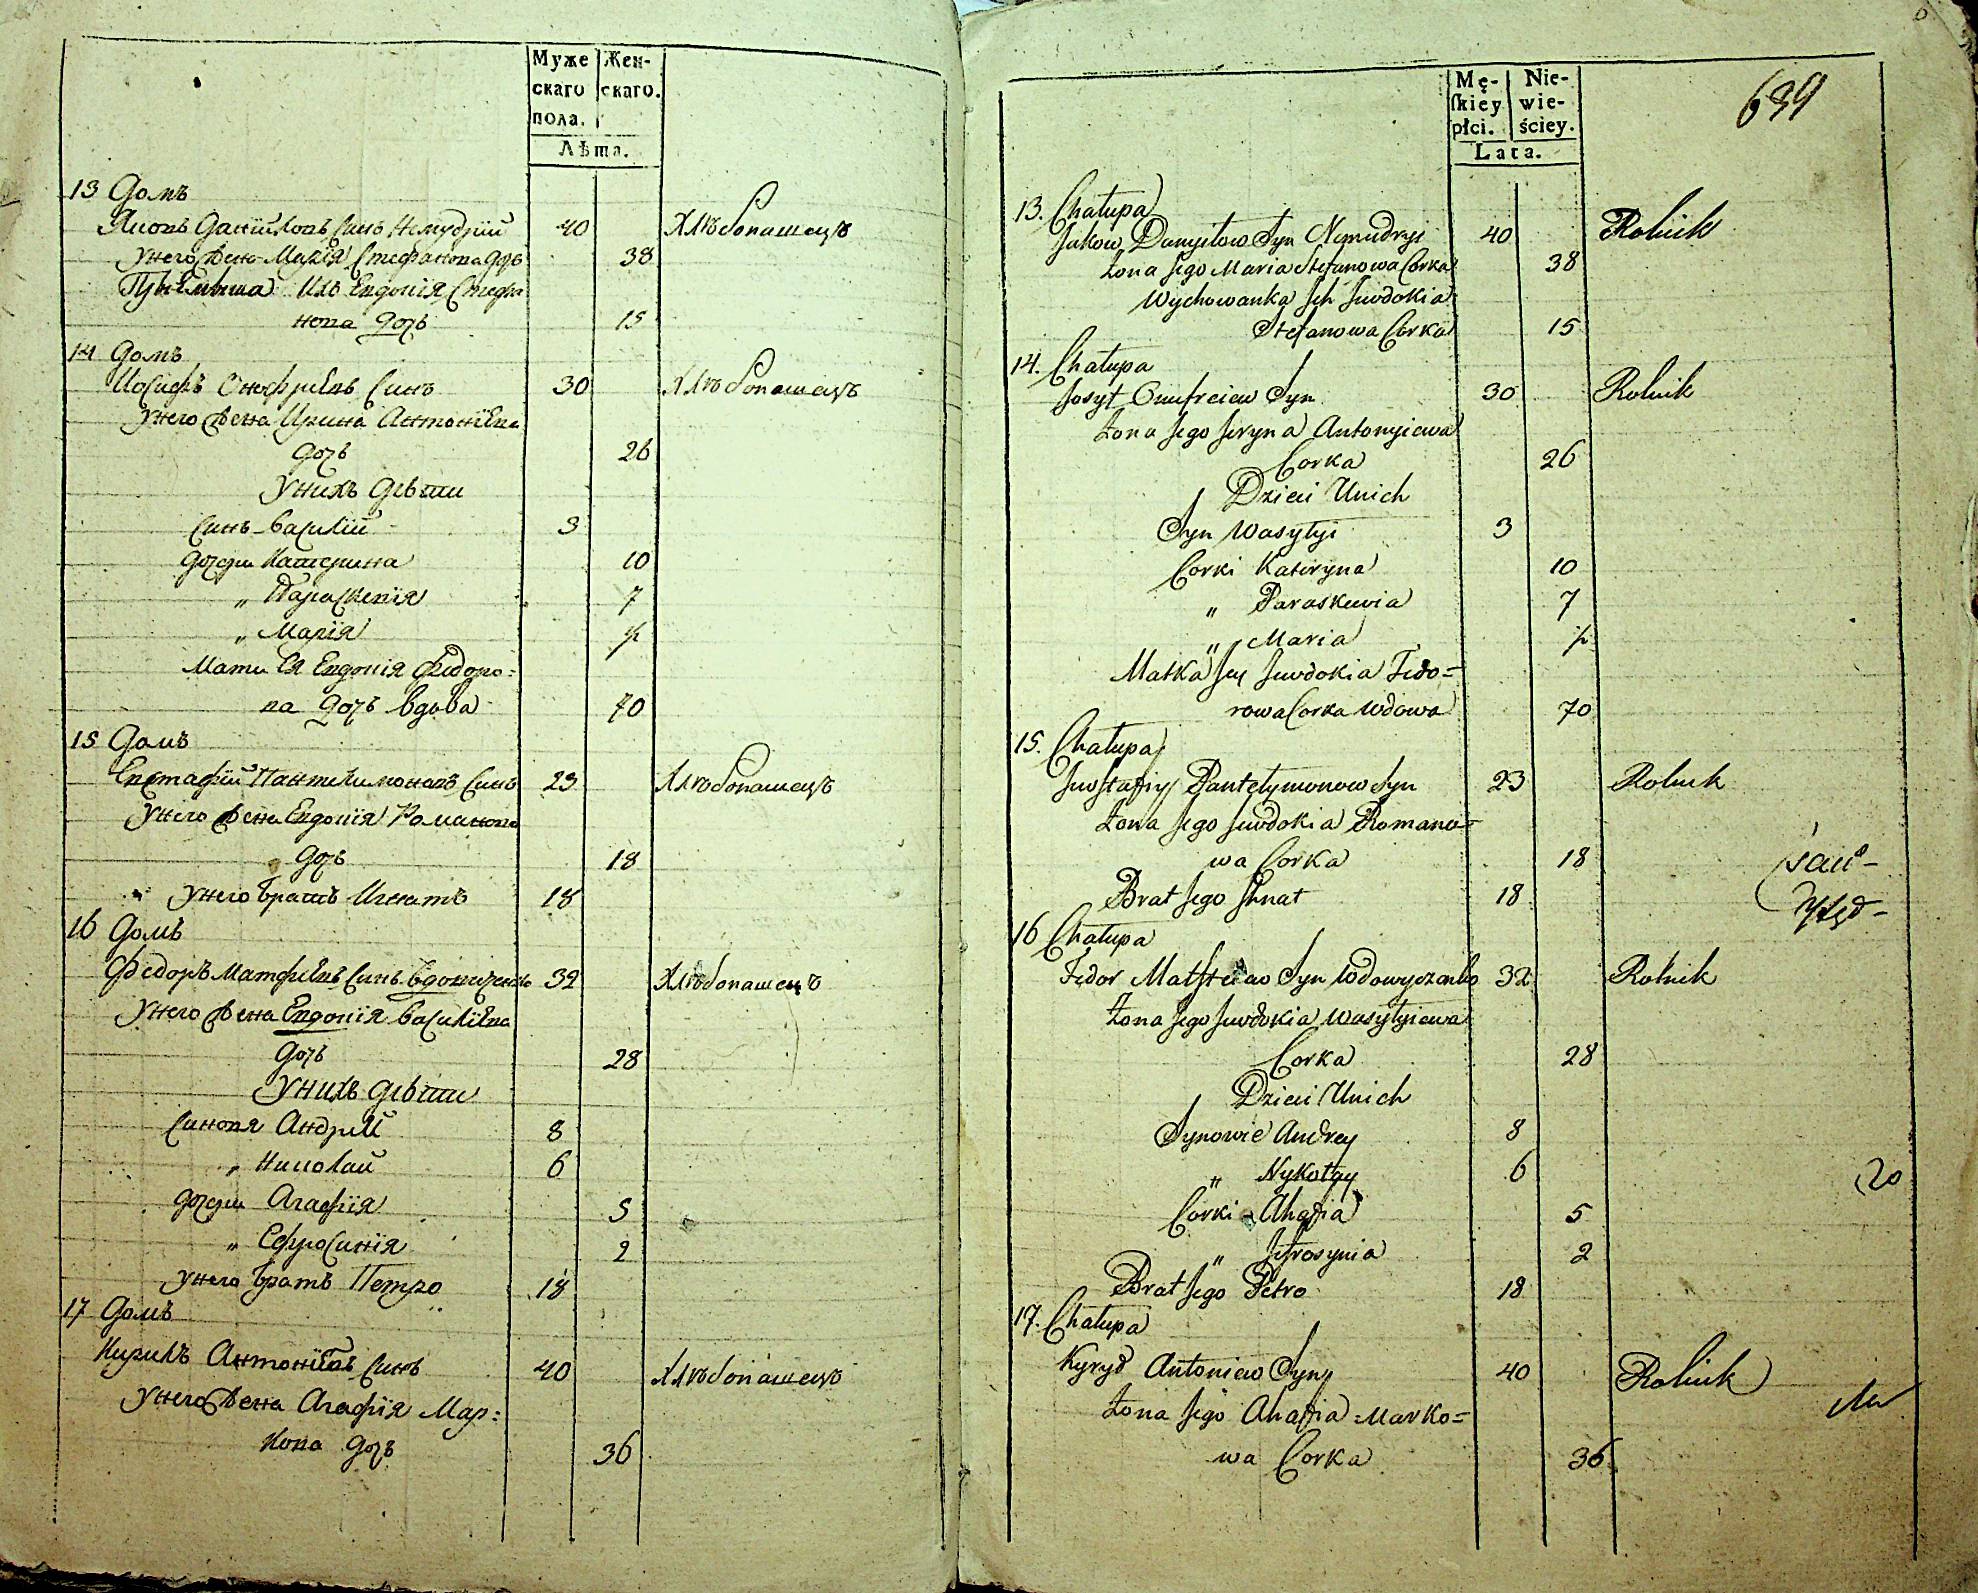 Муже
скаго
пола.
Жен-
скаго.
Лѣта.
13 Домъ
Яковъ Даниіловъ Синъ Немудрий 40 Хлѣбопашецъ
Унего Жена Марія Стефанова дочь 38
Приемиша Ихъ Евдокія Стефа
нова дочь 15
14 Домъ
Иосифъ Онофриевъ Синъ 30 Хлѣбопашецъ
Унего Жена Ирина Антониева
дочь 26
Унихъ дѣти
Синъ Василій 3
дочери Катерина 10
„ Параскевія 7
„ Марія ½
Мати Ея Евдокія Федоро=
ва дочь вдова 70
15 Домъ
Евстафій Пантелимоновъ Синъ 23 Хлѣбопашецъ
Унего Жена Евдокія Романова
дочь 18
Унего братъ Игнатъ 18
16 Домъ
Федоръ Матфиевъ Синъ Вдовиченко 32 Хлѣбопашецъ
Унего Жена Евдокія Василиева
дочь 28
Унихъ дѣти
Синовя Андрей 8
„ Николай 6
дочери Агафія 5
„ Єфросинія 2
Унего братъ Петро 18
17 Домъ
Кирилъ Антониевъ Синъ 40 Хлѣбопашецъ
Унего Жена Агафія Мар=
кова дочь 36
Mę-
skiey
płci.
Nie-
wie-
ściey.
Lata.
639
13. Chałupa
Jakow Danyłow Syn Nemudryi 40 Rolnik
Żona Jego Maria Stefanowa Corka 38
Wychowanka Jch Jewdokia
Stefanowa Corka 15
14. Chałupa
Josyf Onufreiew Syn 30 Rolnik
Żona Jego Jeryna Antonyiewa
Corka 26
Dzieci Unich
Syn Wasylyi 3
Corki Kateryna 10
„ Paraskewia 7
„ Maria ½
Matka Jey Jewdokia Fedo=
rowa Corka Wdowa 70
15. Chałupa
Jewstafiy Pantełymonow Syn 23 Rolnik
Żona Jego Jewdokia Romano=
wa Corka 18
Brat Jego Jhnat 18
16 Chałupa
Fedor Matfieiew Syn Wdowyczenko 32 Rolnik
Żona Jego Jewdokia Wasylyiewa
Corka 28
Dzieci Unich
Synowie Andrey 8
„ Nykołay 6
20
Corki Ahafia 5
„ Jefrosynia 2
Brat Jego Petro 18
17. Chałupa
Kyrył Antoniew Syn 40 Rolnik
Żona Jego Ahafia Marko=
wa Corka 36